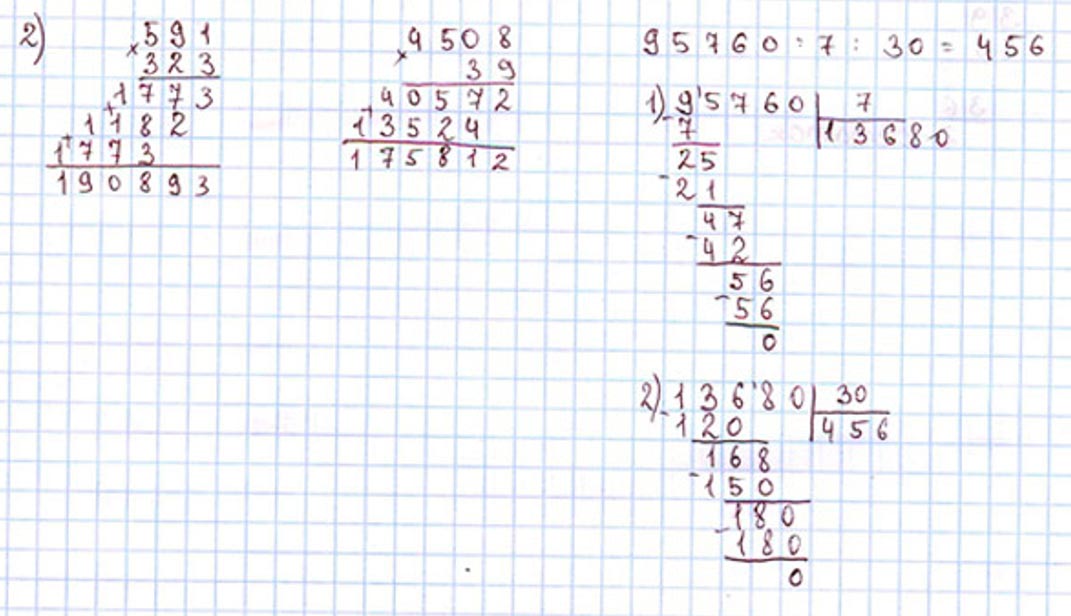 2)
591
× 323
1773
+ 1182
+ 1773
190893
4508
× 39
40572
+ 13524
175812
95760 : 7 : 30 = 456
1) 95760 | 7
- 7 | 13680
25
- 21
47
- 42
56
- 56
0
2) 13680 | 30
- 120 | 456
168
- 150
180
- 180
0